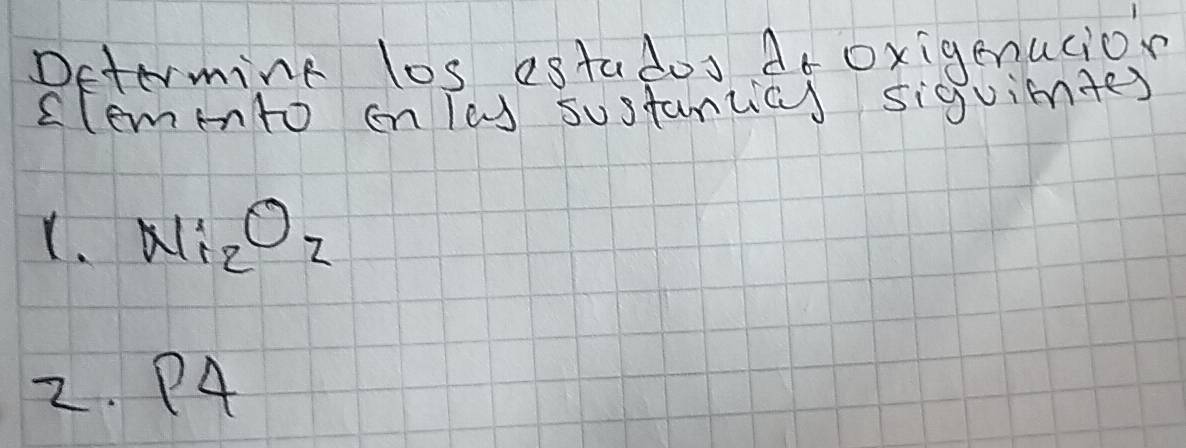 Determine los estados de oxigenación
Elemento en las sustancias siguientes
1. Ni₂O₂
2. P4